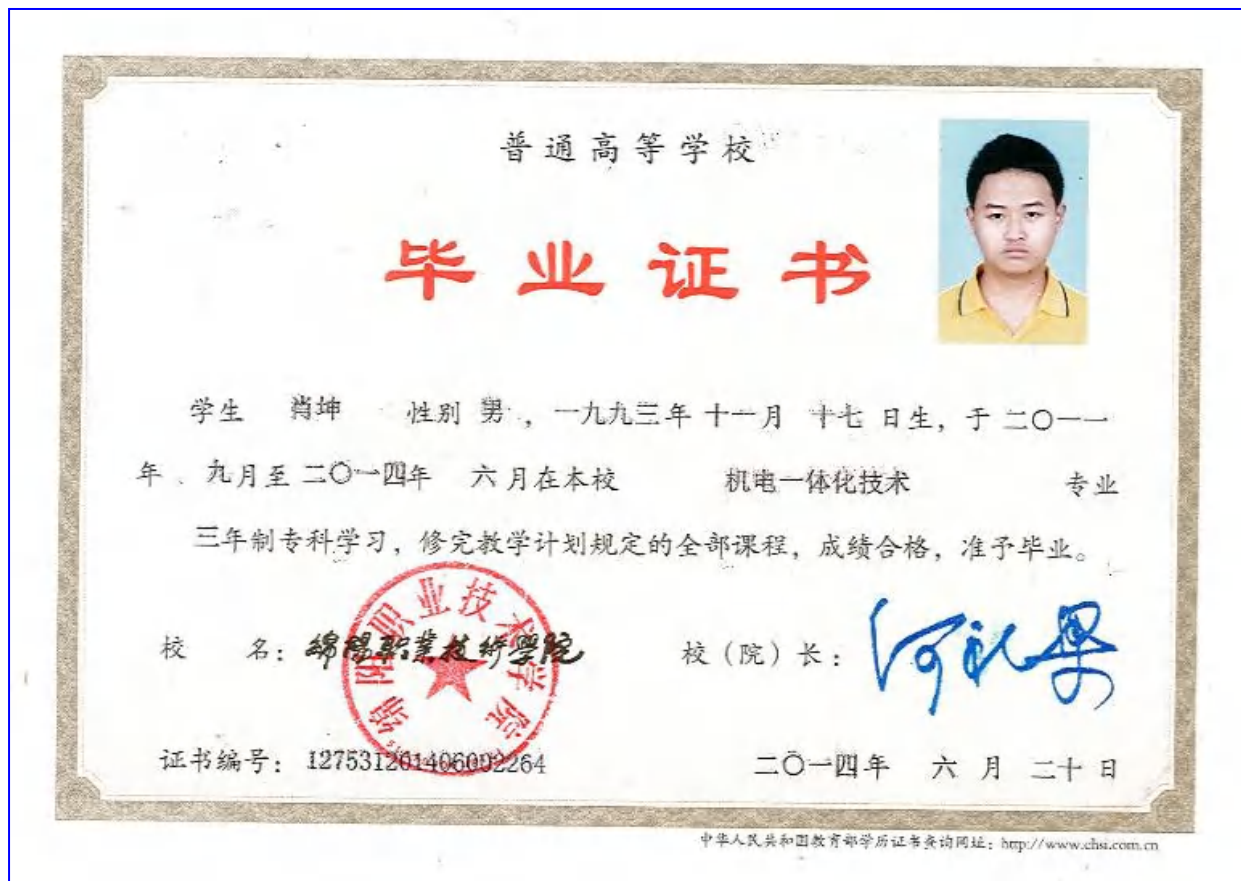 普通高等学校
毕业证书
学生 肖坤 性别 男，一九九三年 十一月 十七 日生，于 二〇一一
年、九月至 二〇一四年 六月在本校 机电一体化技术 专业
三年制专科学习，修完教学计划规定的全部课程，成绩合格，准予毕业。
绵阳职业技术学院
校 名：绵陽职業技術學院 校（院）长：
证书编号：127531201406002264 二〇一四年 六月 二十日
中华人民共和国教育部学历证书查询网址：http://www.chsi.com.cn